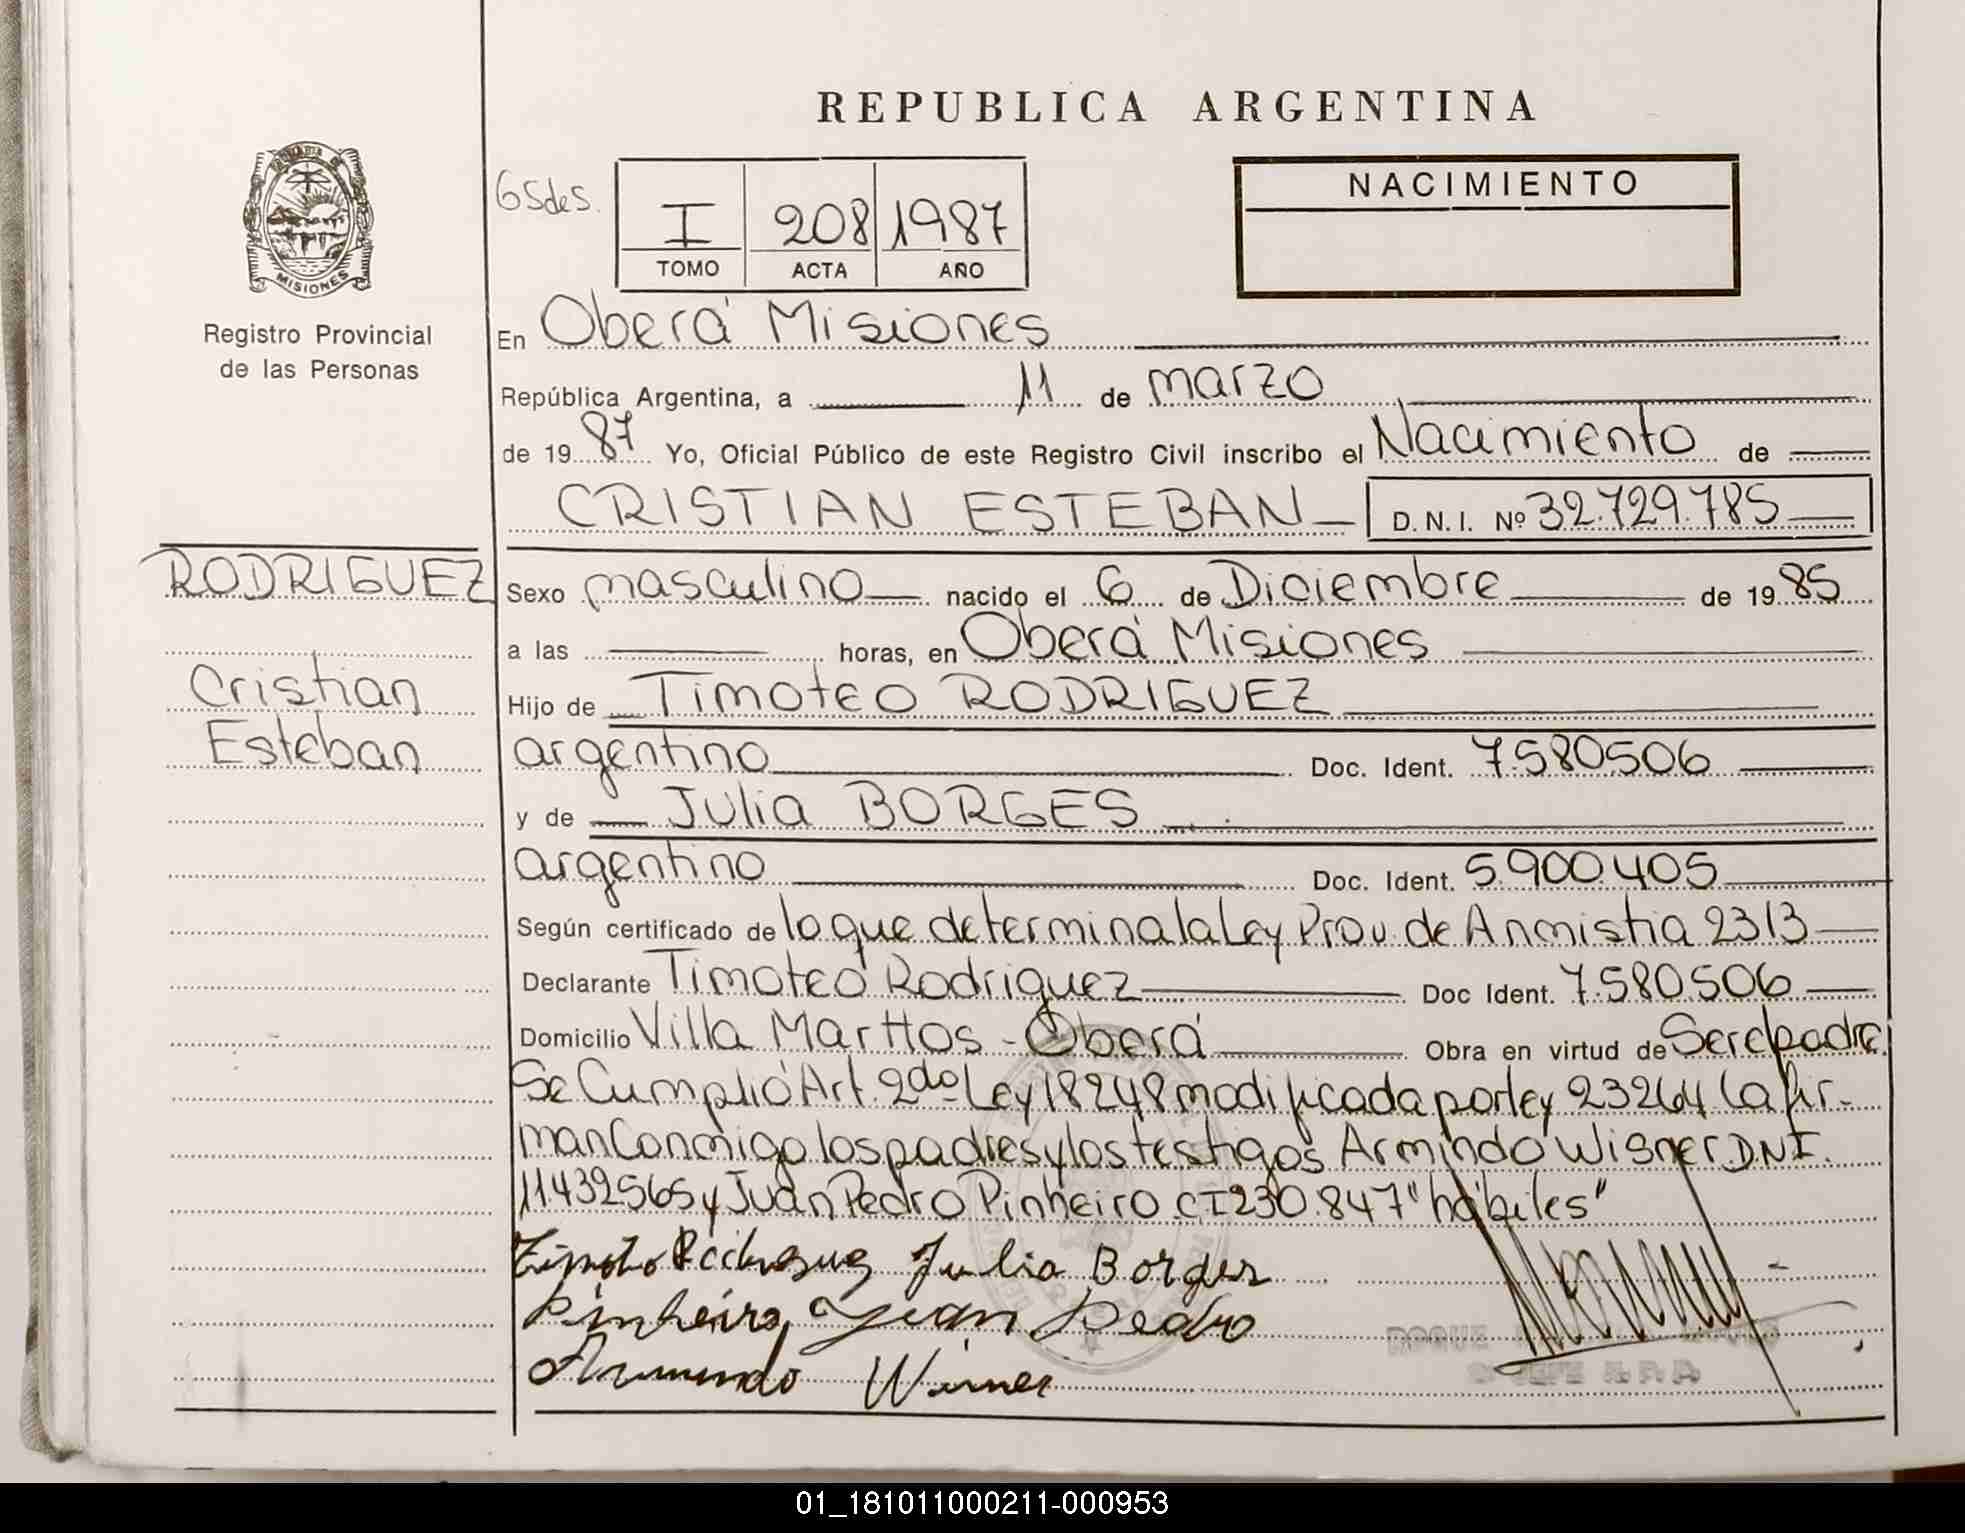 REPUBLICA ARGENTINA
NACIMIENTO
65des.
I 208 1987
TOMO ACTA AÑO
MISIONES
Registro Provincial
de las Personas
En Oberá Misiones
República Argentina, a 11 de marzo
de 1987 Yo, Oficial Público de este Registro Civil inscribo el Nacimiento de
CRISTIAN ESTEBAN D.N.I. Nº 32.729.785
RODRIGUEZ
Cristian
Esteban
Sexo masculino nacido el 6 de Diciembre de 1985
a las horas, en Oberá Misiones
Hijo de Timoteo RODRIGUEZ
argentino Doc. Ident. 7.580.506
y de Julia BORGES
argentino Doc. Ident. 5.900.405
Según certificado de lo que determina la Ley Prov. de Anmistia 2313
Declarante Timoteo Rodriguez Doc Ident. 7.580.506
Domicilio Villa Marttos - Oberá Obra en virtud de Ser el padre
Se Cumplió Art. 2do Ley 18248 modificada por ley 23264 la fir-
man Conmigo los padres y los testigos Armindo Wisner D.N.I.
11.432565 y Juan Pedro Pinheiro C I 230.847 "hábiles"
Julia Borges
Pinheiro Juan Pedro
Armindo Wisner
01_181011000211-000953